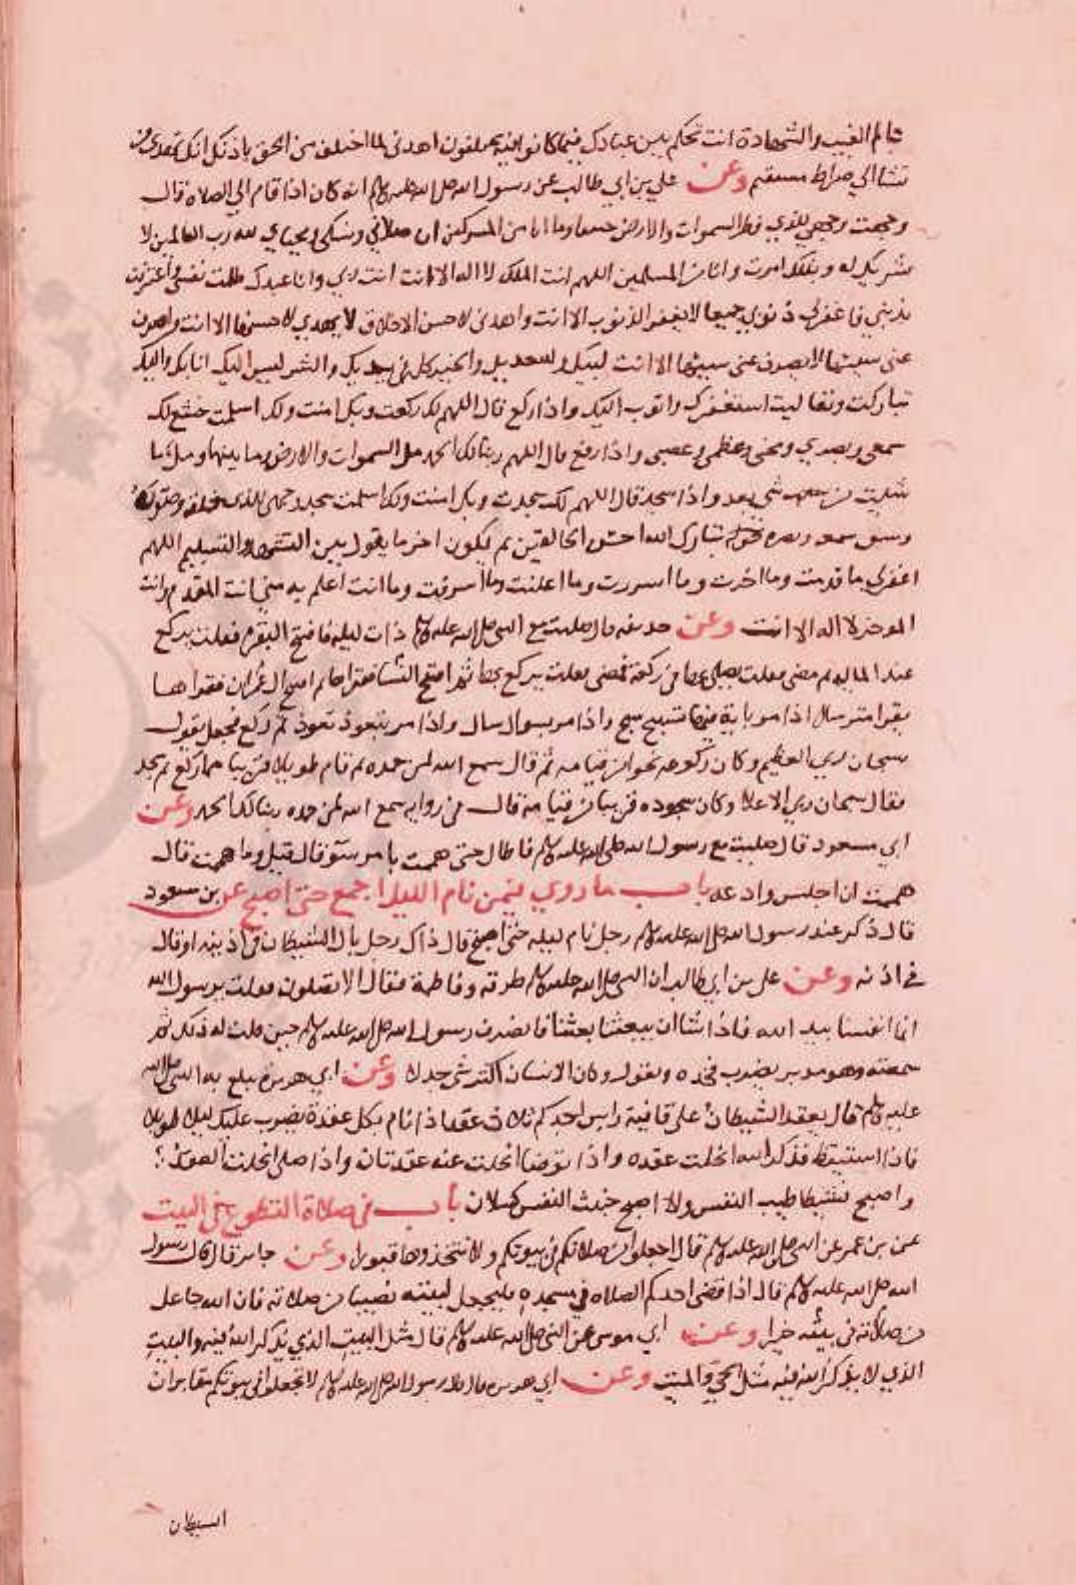 عالم الغيب والشهادة انت تحكم بين عبادك فيما كانوا فيه يختلفون اهدني لما اختلف من الحق باذنك انك تهدي من
تشا الي صراط مستقيم وعن علي بن ابي طالب عن رسول الله صلى الله عليه وسلم انه كان اذا قام الي الصلاة قال
وجهت وجهي للذي فطر السموات والارض حنيفا وما انا من المشركين ان صلاتي ونسكي ومحياي لله رب العالمين لا
شريك له وبذلك امرت وانا من المسلمين اللهم انت الملك لا اله الا انت انت ربي وانا عبدك ظلمت نفسي واعترفت
بذنبي فاغفرلي ذنوبي جميعا لا يغفر الذنوب الا انت واهدني لاحسن الاخلاق لا يهدي لاحسنها الا انت واصرف
عني سيئها لا يصرف عني سيئها الا انت لبيك وسعديك والخير كله في يديك والشر ليس اليك انا بك واليك
تباركت وتعاليت استغفرك واتوب اليك واذا ركع قال اللهم لك ركعت وبك امنت ولك اسلمت خشع لك
سمعي وبصري ومخي وعظمي وعصبي واذا رفع قال اللهم ربنا لك الحمد مل السموات والارض وما بينهما ومل ما
شئت من شي بعد واذا سجد قال اللهم لك سجدت وبك امنت ولك اسلمت سجد وجهي للذي خلقه وصوره
وشق سمعه وبصره تبارك الله احسن الخالقين ثم يكون اخر ما يقول بين التشهد والتسليم اللهم
اغفرلي ما قدمت وما اخرت وما اسررت وما اعلنت وما اسرفت وما انت اعلم به مني انت المقدم وانت
الموخر لا اله الا انت وعن حذيفه قال صليت مع النبي صلى الله عليه وسلم ذات ليله فافتتح البقره فقلت يركع
عند الماية ثم مضى فقلت يصلي بها في ركعة فمضى فقلت يركع بها ثم افتتح النسا فقراها ثم افتتح ال عمران فقراها
يقرا مترسلا اذا مر باية فيها تسبيح سبح واذا مر بسوال سال واذا مر بتعوذ تعوذ ثم ركع فجعل يقول
سبحان ربي العظيم وكان ركوعه نحوا من قيامه ثم قال سمع الله لمن حمده ثم قام طويلا قريبا مما ركع ثم سجد
فقال سبحان ربي الاعلا وكان سجوده قريبا من قيامه قال في رواية سمع الله لمن حمده ربنا لك الحمد وعن
ابي مسعود قال صليت مع رسول الله صلى الله عليه وسلم فاطال حتى هممت بامر سو قال قيل وما هممت قال
هممت ان اجلس وادعه باب ما روي فيمن نام الليل اجمع حتى اصبح عن بن مسعود
قال ذكر عند رسول الله صلى الله عليه وسلم رجل نام ليله حتى اصبح قال ذاك رجل بال الشيطان في اذنيه او قال
في اذنه وعن علي بن ابي طالب ان النبي صلى الله عليه وسلم طرقه وفاطمة فقال الا تصلون فقلت يرسول الله
انما انفسنا بيد الله فاذا شا ان يبعثنا بعثنا فانصرف رسول الله صلى الله عليه وسلم حين قلت له ذلك ثم
سمعته وهو مدبر يضرب فخذه ويقول وكان الانسان اكثر شي جدلا وعن ابي هريرة يبلغ به النبي صلى الله
عليه وسلم قال يعقد الشيطان على قافية راس احدكم ثلاث عقد اذا نام بكل عقدة يضرب عليك ليلا طويلا
فاذا استيقظ فذكر الله انحلت عقده واذا توضا انحلت عنه عقدتان واذا صلى انحلت العقد
واصبح نشيطا طيب النفس والا اصبح خبيث النفس كسلان باب في صلاة التطوع في البيت
عن بن عمر عن النبي صلى الله عليه وسلم قال اجعلوا من صلاتكم في بيوتكم ولا تتخذوها قبورا وعن جابر قال قال رسول
الله صلى الله عليه وسلم قال اذا قضى احدكم الصلاه في مسجده فليجعل لبيته نصيبا من صلاته فان الله جاعل
من صلاته في بيته خيرا وعن ابي موسى عن النبي صلى الله عليه وسلم قال مثل البيت الذي يذكر الله فيه والبيت
الذي لا يذكر الله فيه مثل الحي والميت وعن ابي هريرة قال قال رسول الله صلى الله عليه وسلم لا تجعلوا بيوتكم مقابر ان
الشيطان